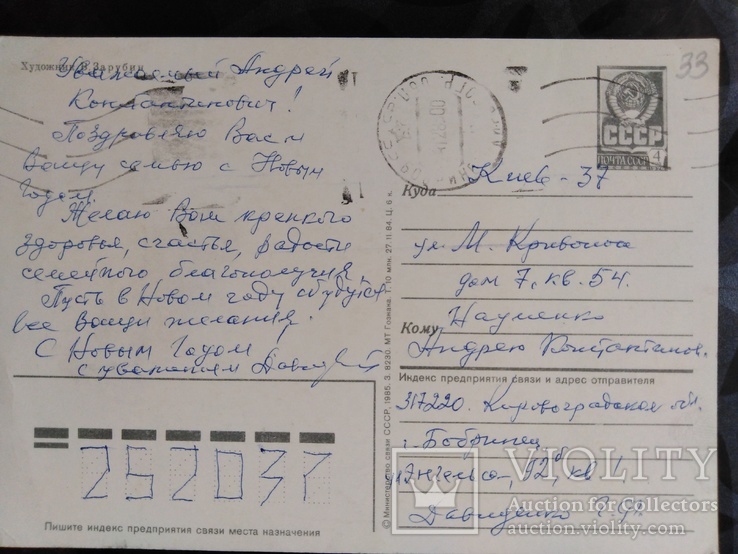 Художник В. Зарубин
Уважаемый Андрей
Константинович!
Поздравляю Вас и
Вашу семью с Новым
Годом!
Желаю Вам крепкого
здоровья, счастья, радости
семейного благополучия
Пусть в Новом году сбудутся
все Ваши желания.
С Новым Годом!
с уважением
33
СССР
ПОЧТА СССР 4
Куда Киев-37
ул. М. Кривоноса
дом 7, кв. 54.
Кому Науменко
Андрею Константинов.
Индекс предприятия связи и адрес отправителя
317220. Кировоградская обл.
г. Бобринец
ул Энгельса, 92, кв 1
Давиденко
© Министерство связи СССР, 1985. З. 8230. МТ Гознака. Т. 10 млн. 27.11.84. Ц. 6 к.
252037
Пишите индекс предприятия связи места назначения
VIOLITY
Auction for Collectors
auction.violity.com